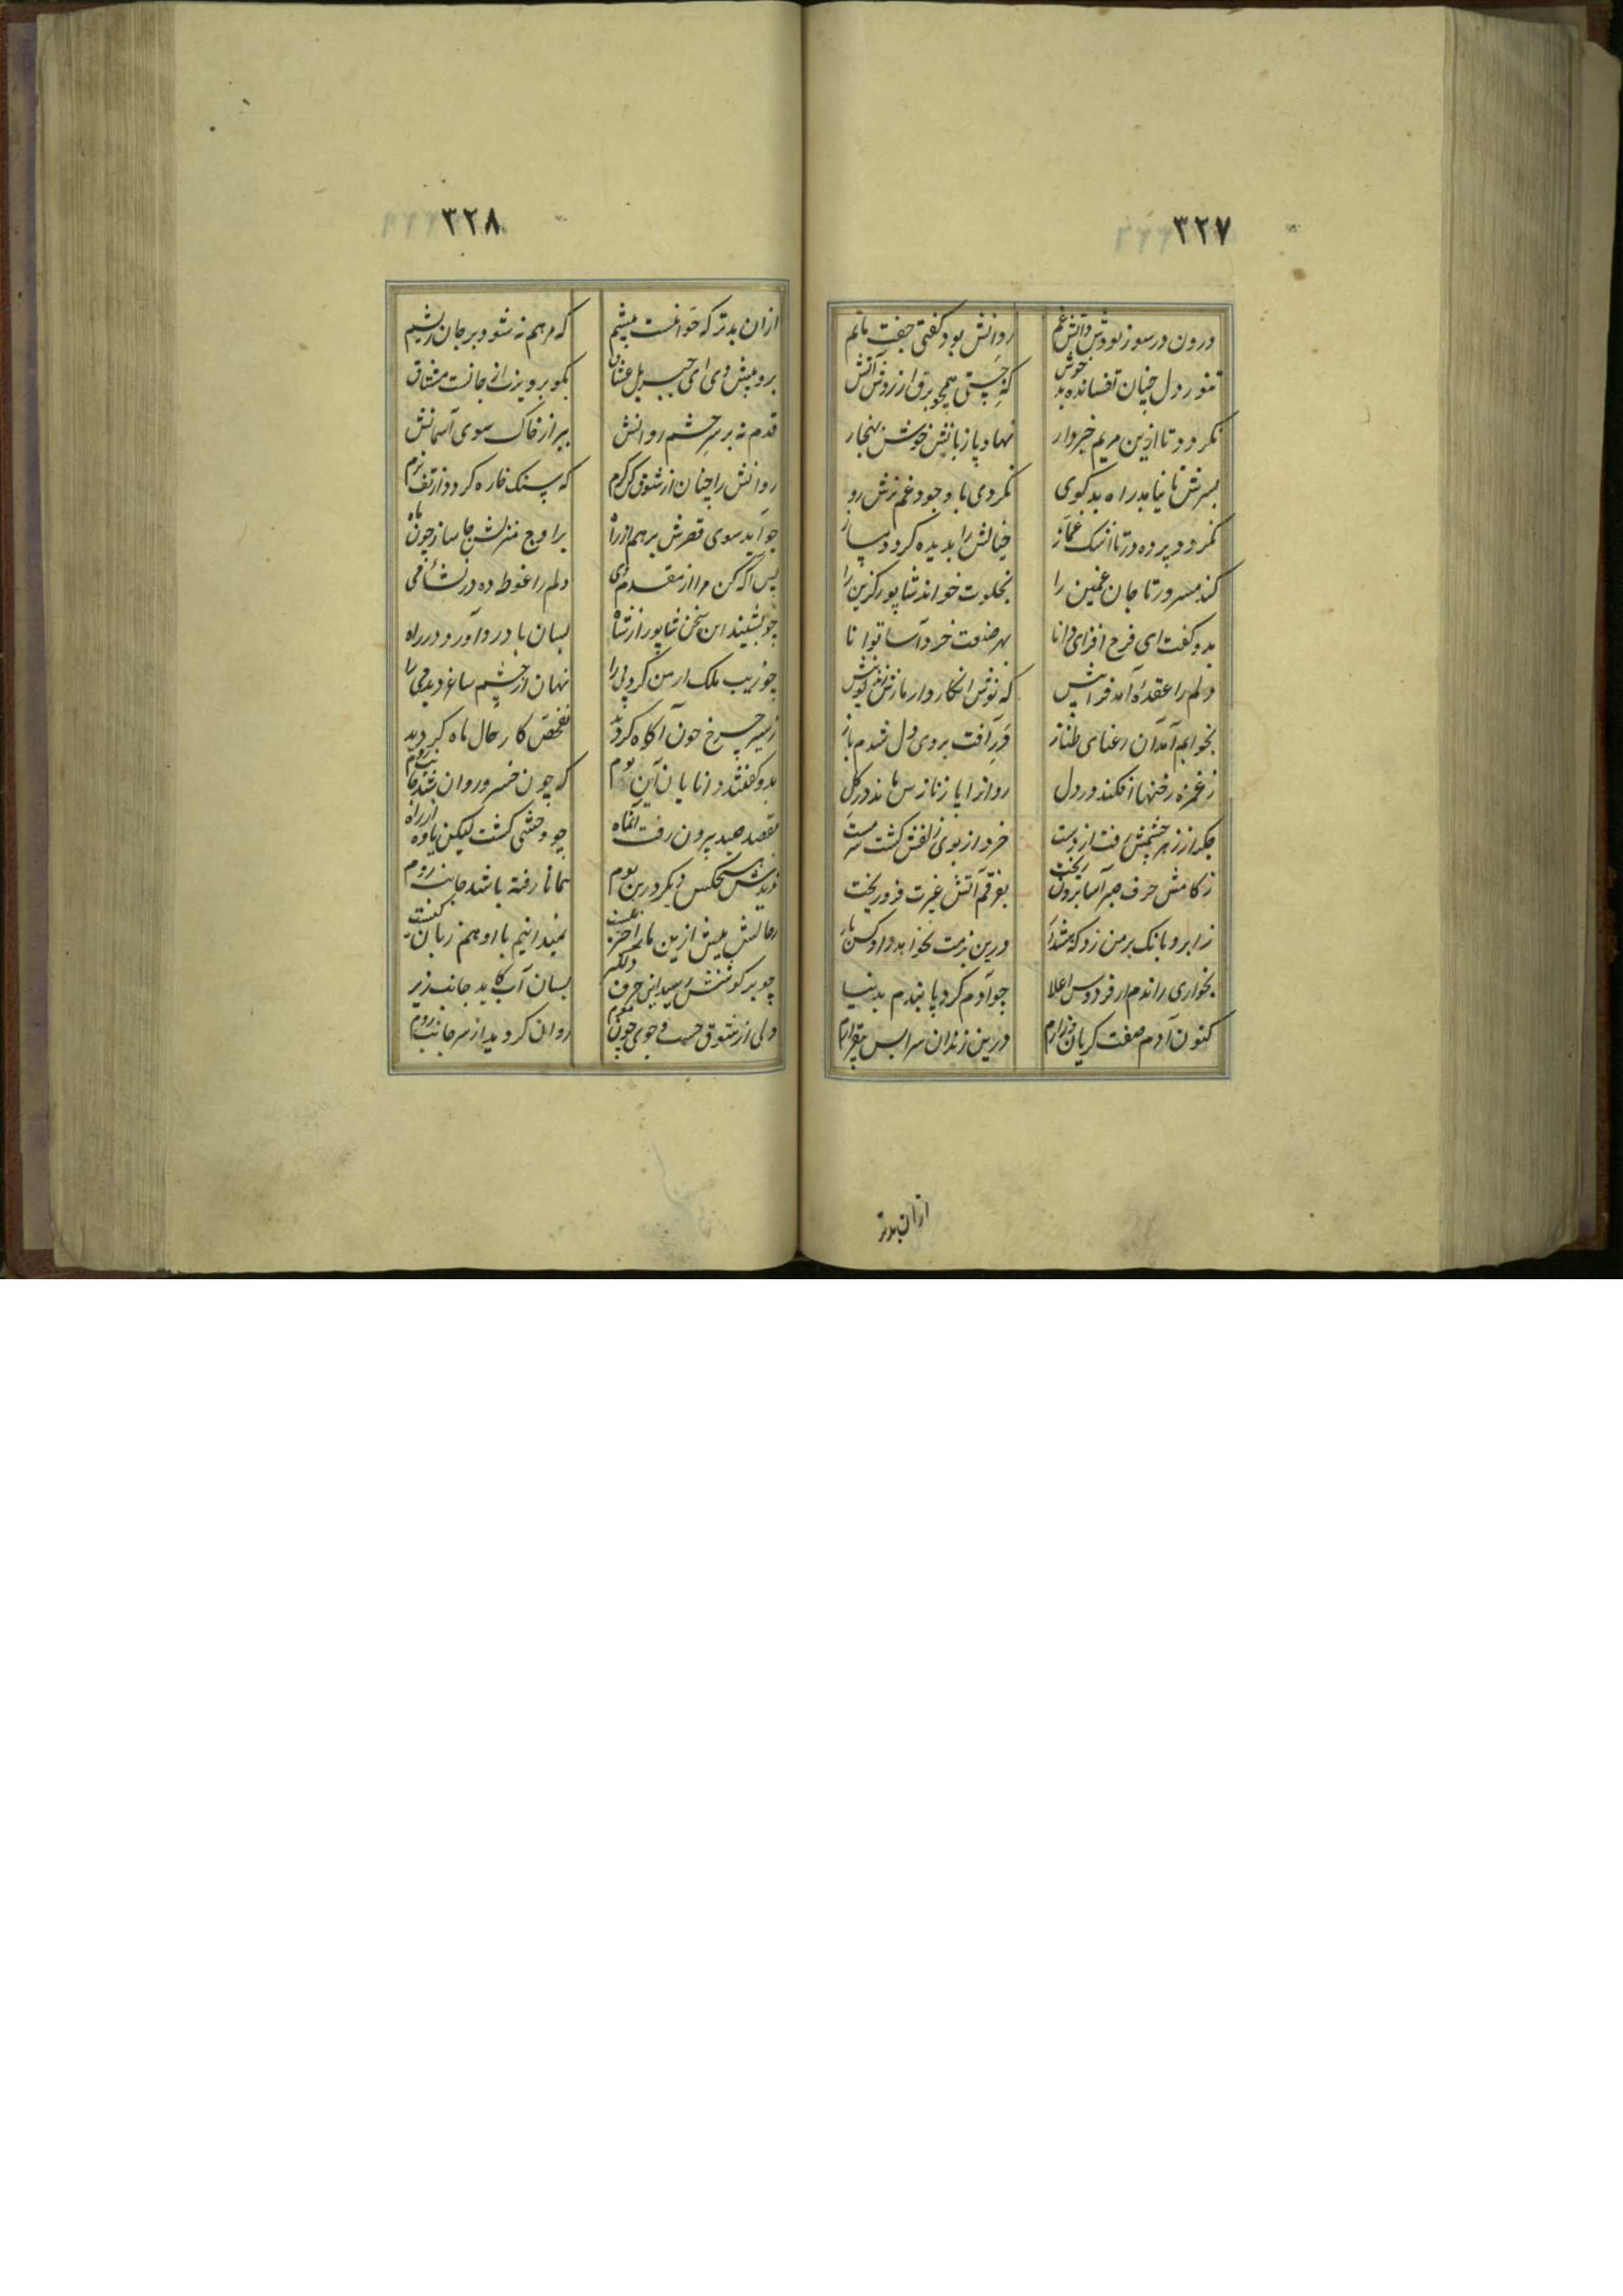 ۳۲۷
درون در سوز بودش ز آتش غم روانش بود گفتی جفت ماتم
تنور دل چنان تفسانده بد خوش که جستی همچو برق از روش آتش
نکردد تا ازین مریم خبردار نهاد پا زبانش خوش بهنجار
بسرش تا نیابد راه بدکوی نکردی با وجود غم ترش رو
نکردد پرده در تا اشک غماز خیالش را بدیده کرد دمساز
کند مسرور تا جان غمین را بخلوت خواند شاپور کزین را
بدو کفت ای فرح افزای دانا بهر صنعت خرد آسا توانا
دلم را عقدهٔ آمد فرا پیش که نوش انکارد ار مارش زند نیش
بخوابم آمد آن رعنای طناز در آفت بروی دل شدم باز
ز غمزه رخنها افکند در دل روانرا پا ز نازش ماند در کل
جکر از زهر چشمش رفت از دست خرد از بوی زلفش کشت سرمست
ز کامش حرف صبر آسا برون ریخت بفرقم آتش غیرت فرو ریخت
ز ابرو بانک بر من زد که درین بزمت نخواهد داد کس بار
بخواری راندم از فردوس اعلا چو آدم کرد پا بندم بدنیا
کنون آدم صفت کریان و زارم درین زندان سرا بس بیقرارم
ازان بدتر
۳۲۸
ازان بدتر که خوانمت پیشم که مرهم نه شود بر جان ریشم
برو پیش وی ای جبریل عشاق بکو پرویز از جانست مشتاق
قدم نه بر سر چشم روانش ببر از خاک سوی آسمانش
روانش را چنان از شوق کن کرم که سنک خاره کردد از تفش نرم
چو آید سوی قصرش بر هم از راه بر اوج منزلش جا ساز چون ماه
پس آکه کن مرا از مقدم وی دلم را غوطه ده در نشاء می
چو بشنید این سخن شاپور از شاه بسان باد رو آورد در راه
چو زیب ملک ارمن کرد پی را نهان از چشم ساغر دید می را
ز سیر چرخ چون آکاه کردید تفحص کار حال ماه کردید
بدو کفتند دانایان آن بوم که چون خسرو روان شد جانب روم
بقصد صید بیرون رفت آنماه چو وحشی کشت لیکن یاوه از راه
ندیدش هیچکس دیکر درین بوم همانا رفته باشد جانب روم
ز حالش بیش ازین ما را خبر نیست نمیدانیم با او همزبان کیست
چو بر کوشش رسید این حرف دلکیر بسان آب کاید جانب زیر
دلی از شوق جست و جوی چون موم روان کردید از سر جانب روم